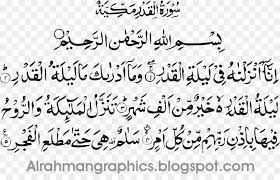 سُورَةُ الْقَدْرِ مَكِّيَّةٌ
بِسْمِ اللهِ الرَّحْمٰنِ الرَّحِيْمِ
اِنَّآ اَنْزَلْنٰهُ فِيْ لَيْلَةِ الْقَدْرِ ۝١ وَمَآ اَدْرٰىكَ مَا لَيْلَةُ الْقَدْرِ ۝٢
لَيْلَةُ الْقَدْرِ خَيْرٌ مِّنْ اَلْفِ شَهْرٍ ۝٣ تَنَزَّلُ الْمَلٰٓئِكَةُ وَالرُّوْحُ
فِيْهَا بِاِذْنِ رَبِّهِمْ مِّنْ كُلِّ اَمْرٍ ۝٤ سَلٰمٌ هِيَ حَتّٰى مَطْلَعِ الْفَجْرِ ۝٥
Alrahmangraphics.blogspot.com